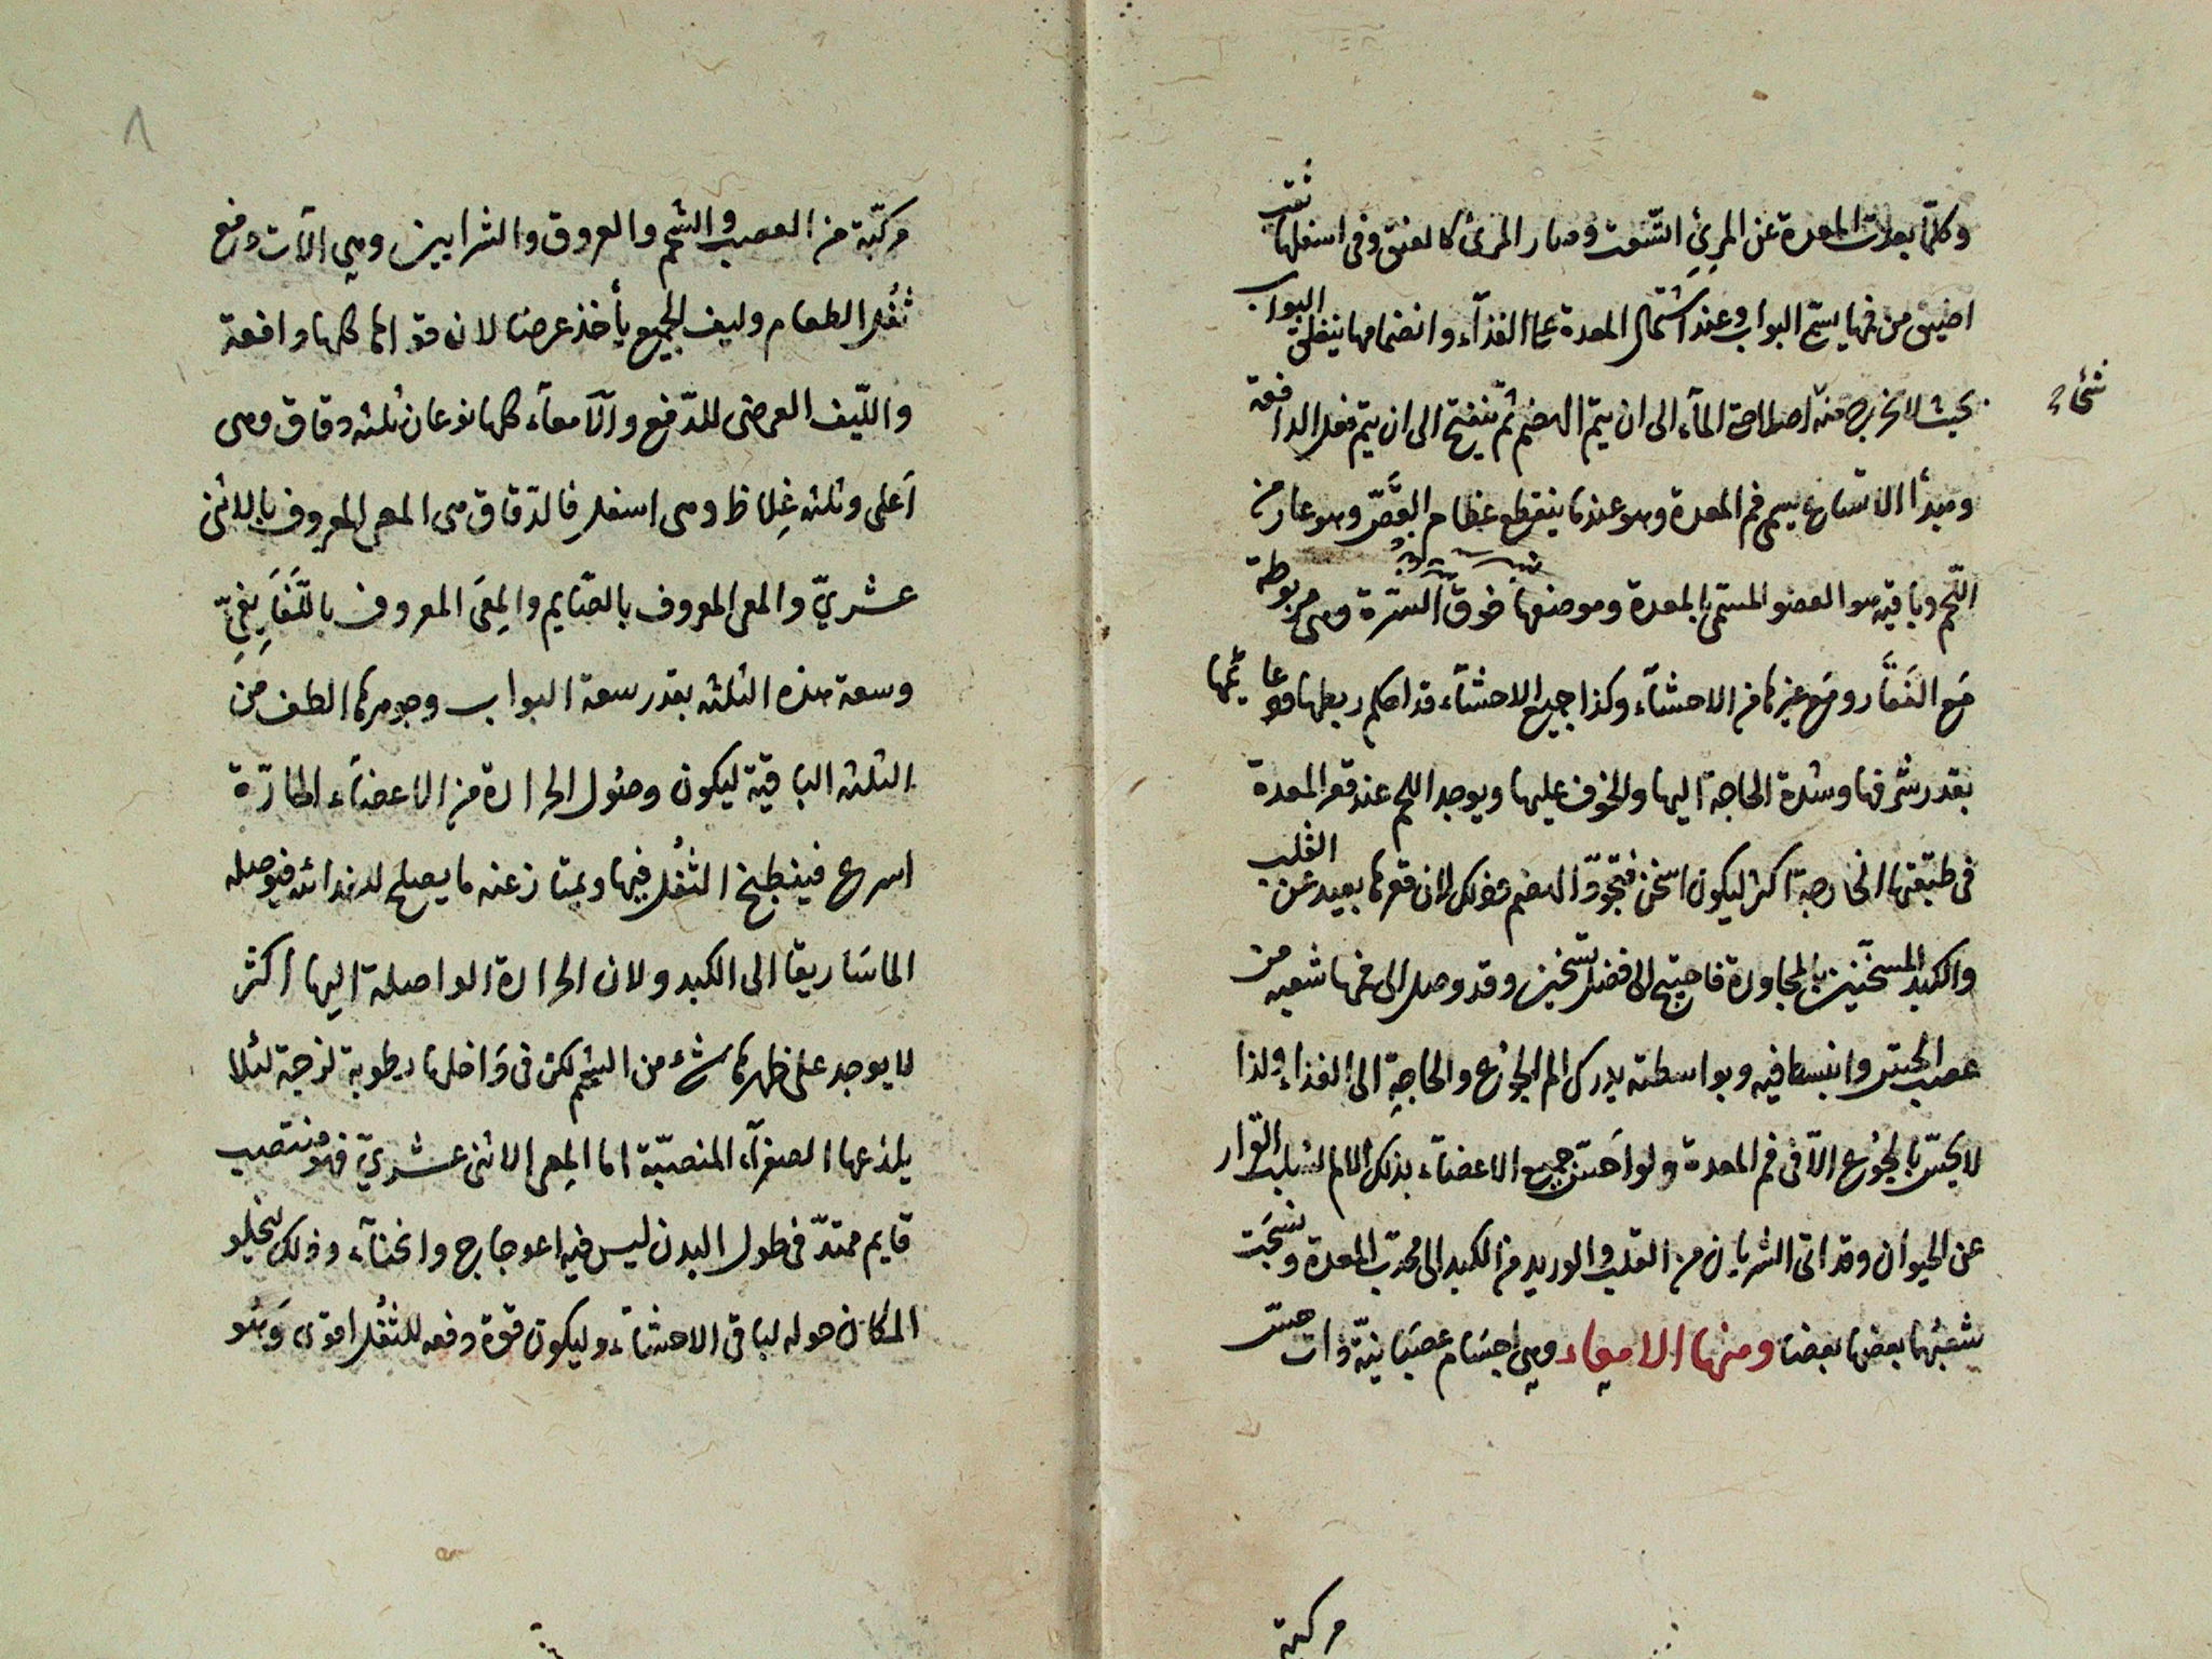 وكلّما بعدت المعدة عن المرئ اتّسعت وصار المرئ كالعنق وفى اسفلها ثقب
اضيق من فمها يسمّى البواب وعند اشتمال المعدة على الغذآء وانضمامها ينغلق البواب
بحيث لا يخرج منه اصلا حتى المآء الى ان يتم الهضم ثم ينفتح الى ان يتم فعل الدافعة
شئ ح
ومبدأ الاتساع يسمى فم المعدة وهو عند ما ينقطع عظام القصّ وهو عار من
اللّحم وباقيه هو العضو المسمّى بالمعدة وموضعها فوق السّرّة وهى مربوطة
مع الفقار ومع غيرها من الاحشآء وكذا جميع الاحشآء قد احكم ربطها
بقدر شرفها وشدة الحاجة اليها والخوف عليها ويوجد اللحم عند قعر المعدة
فى طبقتها الخارجة اكثر ليكون اسخن فتجوّد الهضم وذلك لان قعرها بعيد عن القلب
والكبد المسخّنين بالمجاورة فاحتيج الى فضل تسخين وقد وصل الى فمها شعبه من
عصب الحسّ وانبسط فيه وبواسطته يدرك الم الجوع والحاجة الى الغذاء ولذا
لا يحسّ بالجوع الّا فى فم المعدة ولو احسّ جميع الاعضآء بذلك الالم لسلب القرار
عن الحيوان وقد اتى الشريان من القلب والوريد من الكبد الى محدّب المعدة ونسجت
شعبتهما بعضها بعضا ومنها الامعاء وهى اجسام عصبانيّة ذات حسّ
مركبة
مركّبة من العصب والشحم والعروق والشرايين وهى الآت دفع
ثُفل الطعام وليف الجميع يأخذ عرضا لان قواها كلها دافعة
واللّيف العرضى للدّفع والآمعآء كلها نوعان ثلثه دقاق وهى
اعلى وثلثه غِلاظ وهى اسفل فالدّقاق هى المعى المعروف بالاثنى
عشريّ والمعى المعروف بالصّايم والمِعَى المعروف باللّفَايِفيّ
وسعة هذه الثلثه بقدر سعة البواب وجوهرها الطف من
الثلثه الباقية ليكون وصول الحرارة من الاعضآء الحارّة
اسرع فينطبخ الثفُل فيها ويمتاز عنه ما يصلح للغذائيه فيوصله
الماسَاريقا الى الكبد ولان الحرارة الواصلة اليها اكثر
لا يوجد على ظهرها شئ من الشحم لكن فى دَاخلها رطوبة لزجة لئلا
يلذعها الصفرآء المنصبّة اما المِعى الاثنى عشريّ فهو منتصب
قايم ممتدّ فى طول البدن ليس فيه اعوجاج وانحنآء وذلك ليخلو
المكان حوله لباقى الاحشآء وليكون قوة دفعه للثفُل اقوى وَهُو